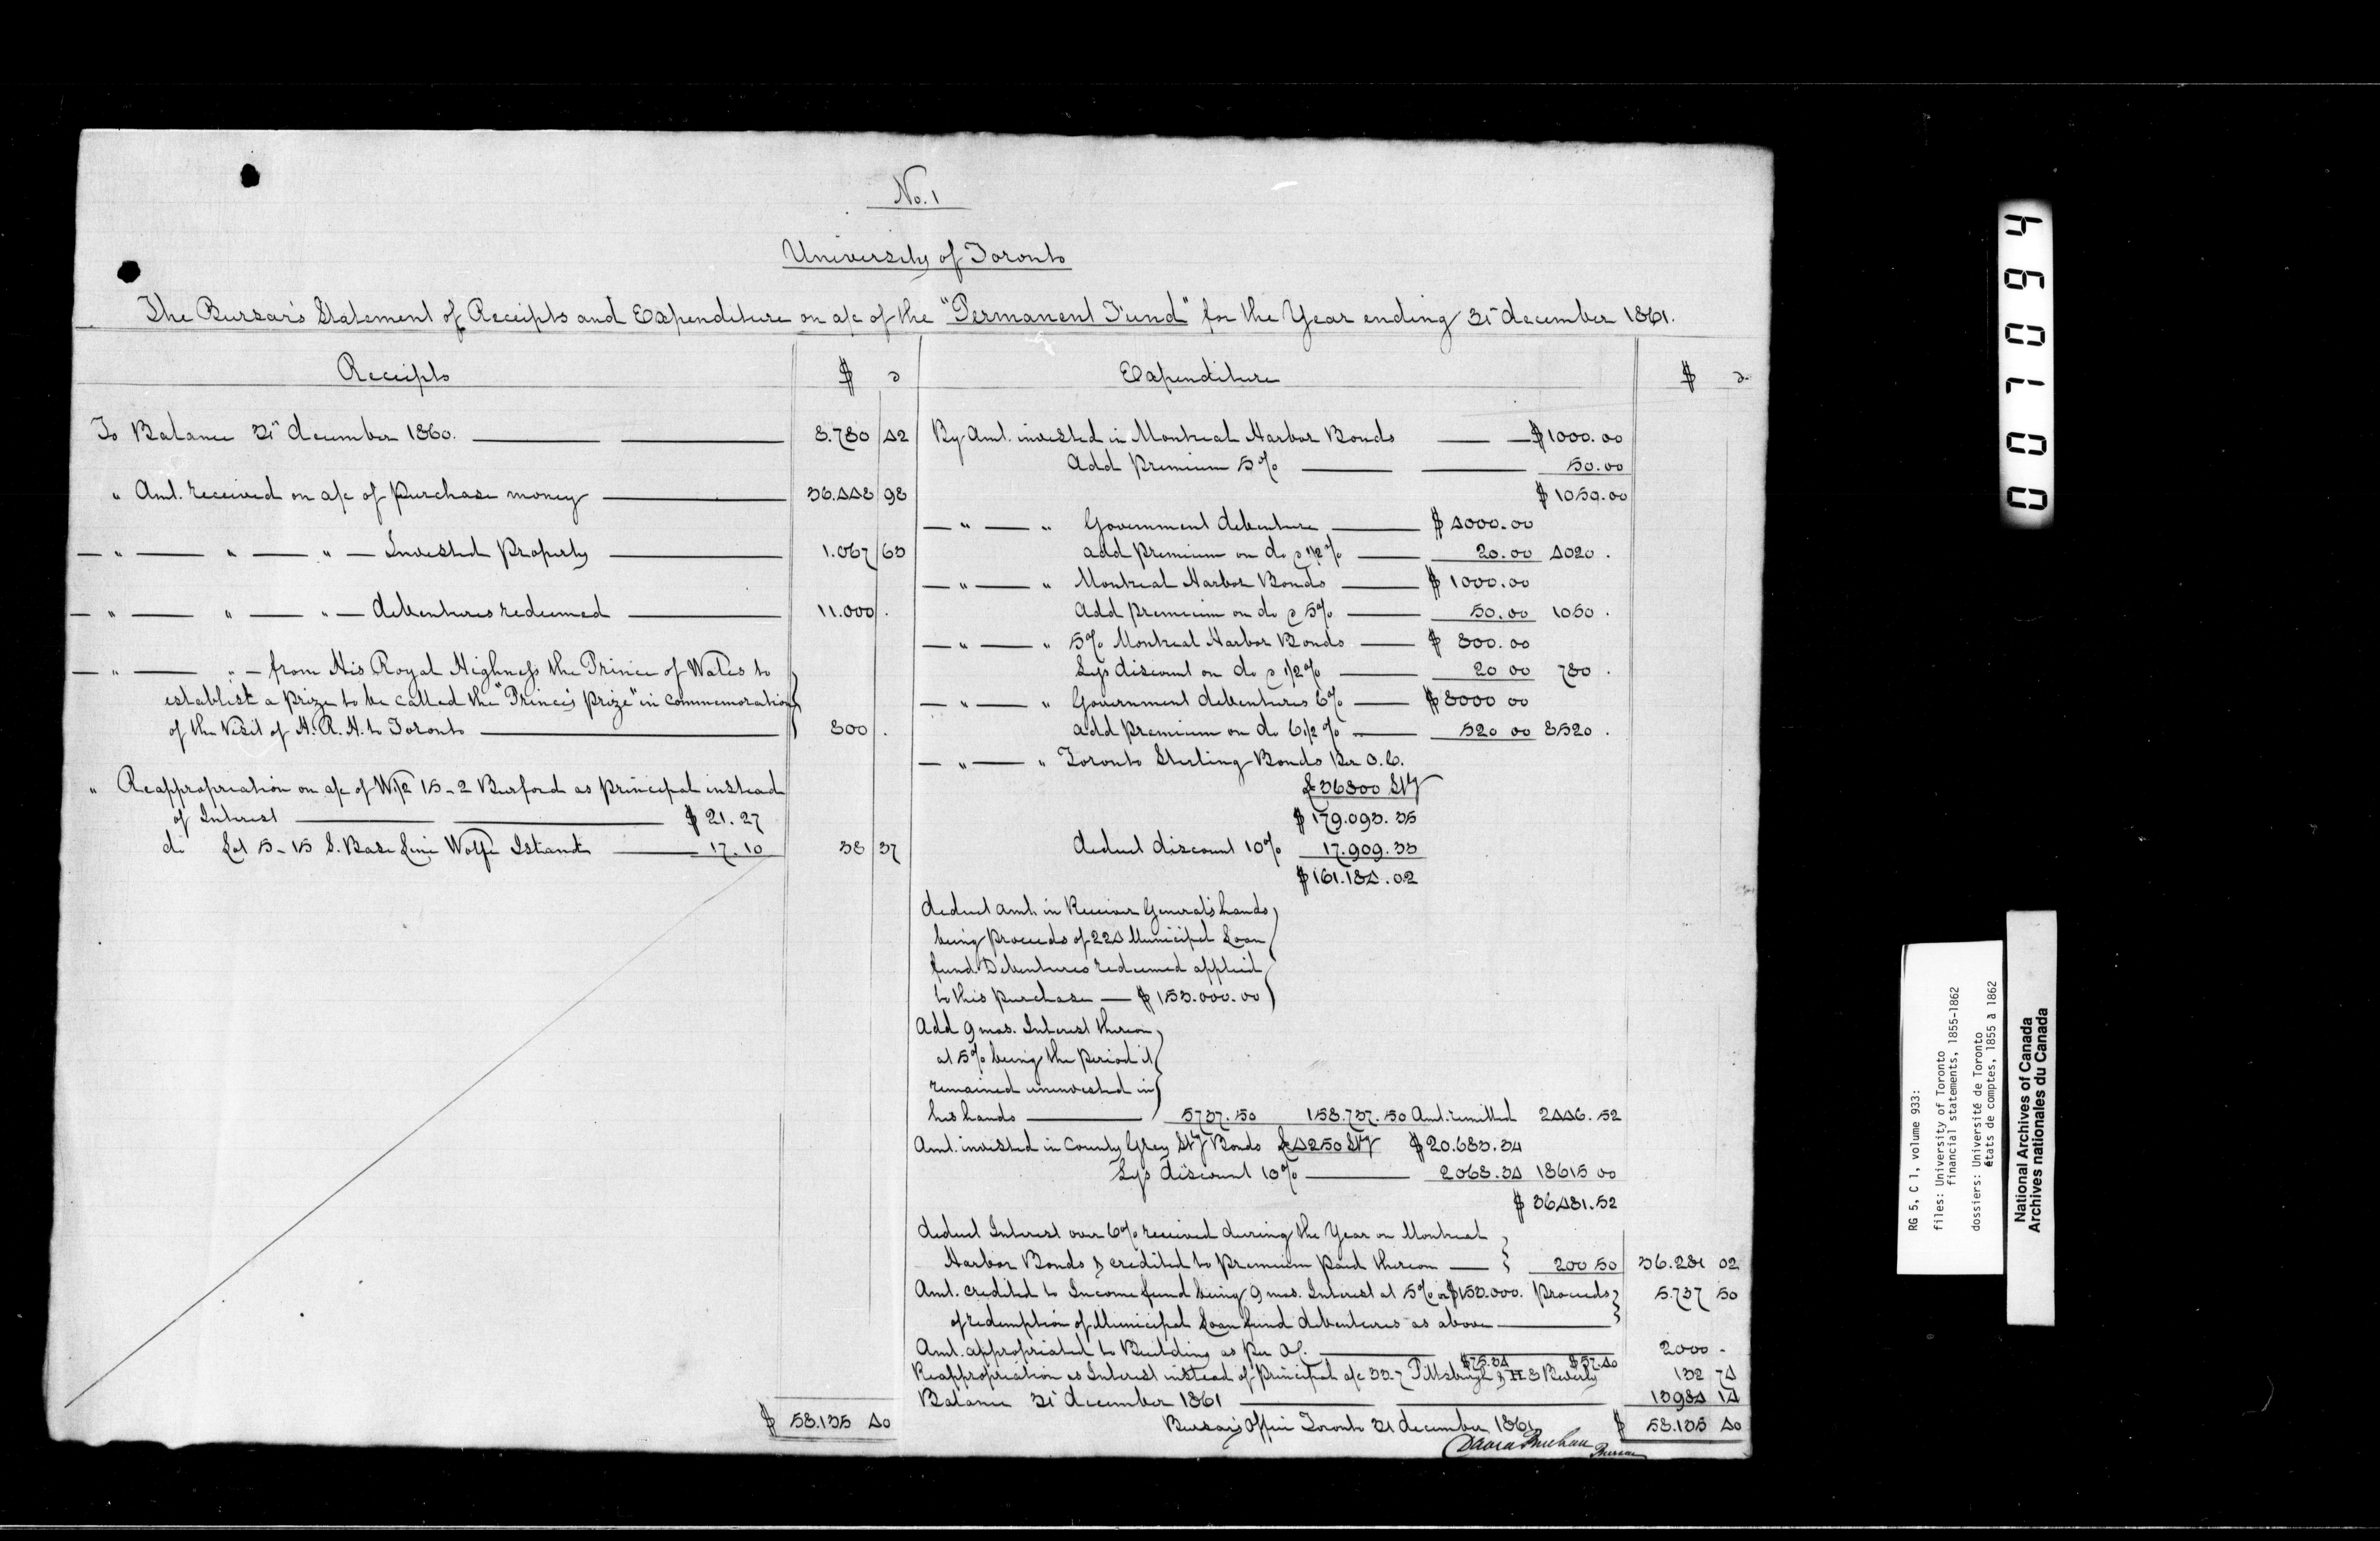 No. 1
University of Toronto
The Bursar's Statement of Receipts and Expenditure on a/c of the "Permanent Fund" for the Year ending 31st december 1861.
Receipts $ c
To Balance 31st december 1860. 8.780 42
" Amt. received on a/c of purchase money 36.448 98
" " " Invested Property 1.067 63
" " " debentures redeemed 11.000 .
" " from His Royal Highness the Prince of Wales to
establish a prize to be called the "Prince's prize" in commemoration
of the Visit of H.R.H. to Toronto 800 .
" Reappropriation on a/c of W½ 15-2 Burford as principal instead
of Interest $ 21.27
do Lot 5-15 S. Base Line Wolfe Island 17.10 38 37
$ 58.135 40
Expenditure $ c.
By Amt. invested in Montreal Harbor Bonds $ 1000.00
Add premium 5% 50.00
$ 1050.00
" " Government debenture $ 4000.00
add premium on do @ 1/2% 20.00 4020 .
" " Montreal Harbor Bonds $ 1000.00
Add premium on do @ 5% 50.00 1050 .
" " 5% Montreal Harbor Bonds $ 800.00
Less discount on do 2 1/2% 20 00 780 .
" " Government debentures 6% $ 8000 00
add premium on do 6 1/2% 520 00 8520 .
" " Toronto Sterling Bonds Per O.C.
£36800 Stg
$ 179.093.35
deduct discount 10% 17.909.33
$ 161.184.02
deduct amt. in Receiver General's hands
being proceeds of 224 Municipal Loan
fund Debentures redeemed applied
to this purchase $ 153.000.00
Add 9 mos. Interest thereon
at 5% being the period it
remained uninvested in
his hands 5737.50 158.737.50 Amt. remitted 2446.52
Amt. invested in County Grey Stg Bonds £4250 Stg $ 20.683.34
Less discount 10% 2068.34 18615 00
$ 36481.52
deduct Interest over 6% received during the Year on Montreal
Harbor Bonds & credited to premium paid thereon 200 50 36.281 02
Amt. credited to Income fund being 9 mos. Interest at 5% on $153.000. proceeds 5.737 50
of redemption of Municipal Loan fund debentures as above
Amt. appropriated to Building as per OC. 2000 -
$75.34 $57.40
Reappropriation as Interest instead of principal a/c 33-7 Pittsburgh & H 8 Beverly 132 74
Balance 31st december 1861 13984 14
Bursar's Office Toronto 31 december 1861 $ 58.135 40
David Buchan
Bursar
0 0 1 0 9 4
RG 5, C 1, volume 933:
files: University of Toronto
financial statements, 1855-1862
dossiers: Université de Toronto
états de comptes, 1855 à 1862
National Archives of Canada
Archives nationales du Canada